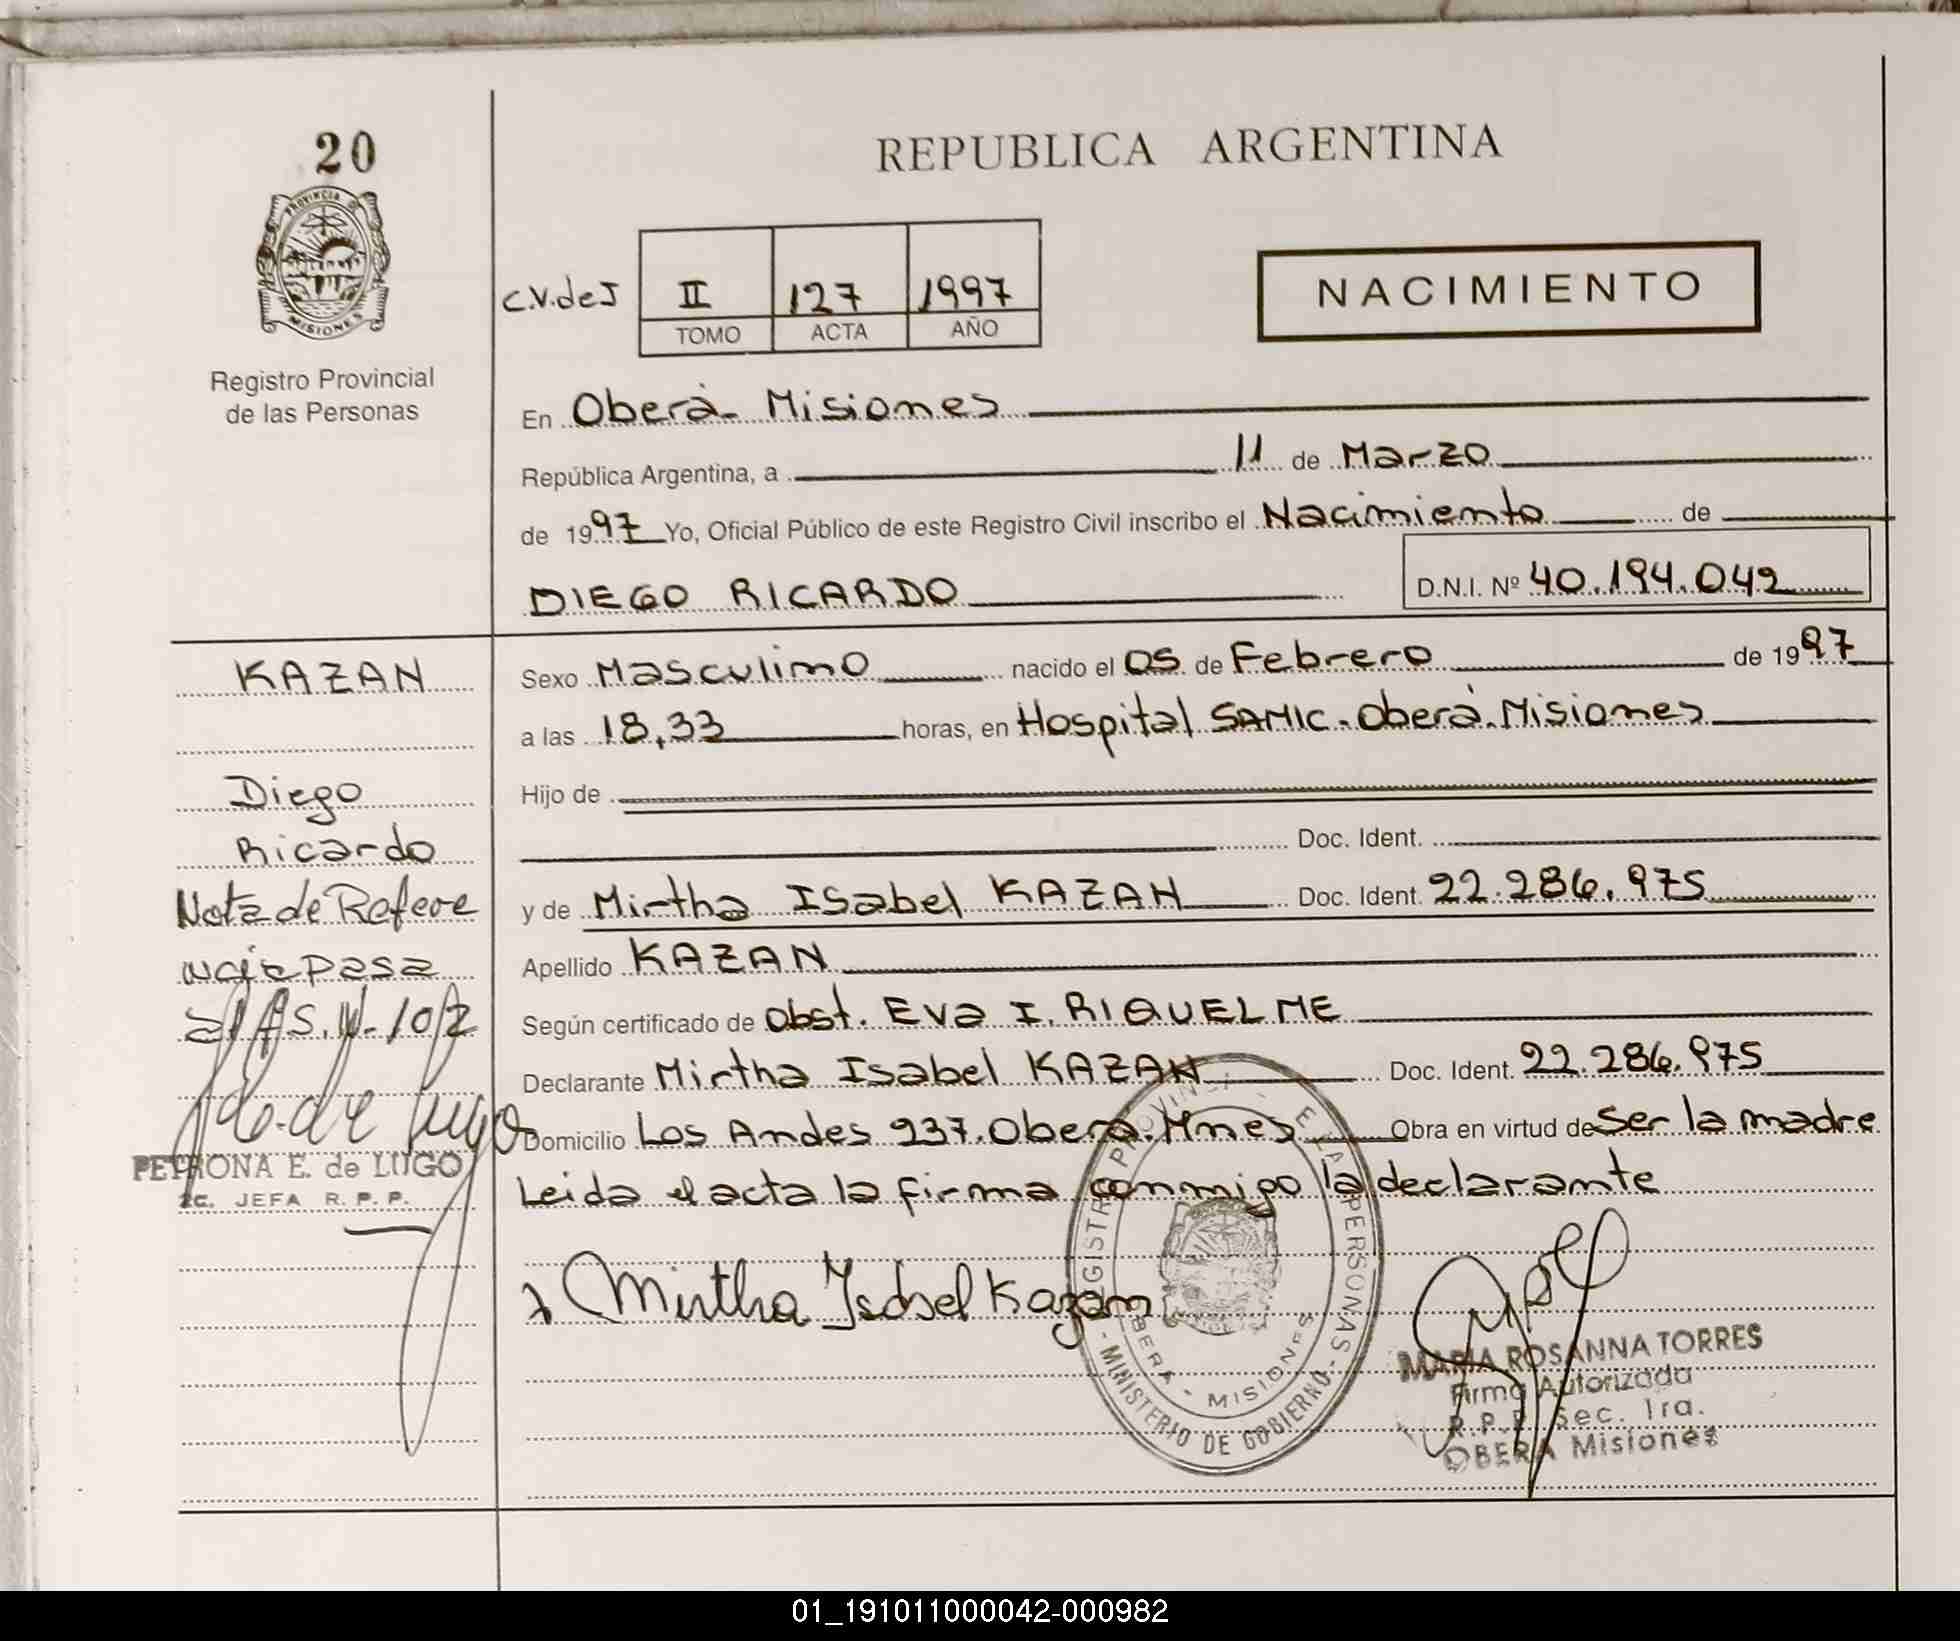 20
PROVINCIA DE
MISIONES
Registro Provincial
de las Personas
REPUBLICA ARGENTINA
C.V.deJ II 127 1997
TOMO ACTA AÑO
NACIMIENTO
En Oberà- Misiones
República Argentina, a 11 de Marzo
de 1997 Yo, Oficial Público de este Registro Civil inscribo el Nacimiento de
DIEGO RICARDO D.N.I. Nº 40.194.042
KAZAN
Diego
Ricardo
Nota de Refere
ncia Pasa
al Fs. N- 102
PETRONA E. de LUGO
2c. JEFA R. P. P.
Sexo Masculino nacido el 05 de Febrero de 1997
a las 18,33 horas, en Hospital SAMIC. Oberà. Misiones
Hijo de
Doc. Ident.
y de Mirtha Isabel KAZAN Doc. Ident. 22.286.975
Apellido KAZAN
Según certificado de Obst. Eva I. RIQUELME
Declarante Mirtha Isabel KAZAN Doc. Ident. 22.286.975
Domicilio Los Andes 937. Oberà. Mnes Obra en virtud de Ser la madre
Leida el acta la firma conmigo la declarante
Mirtha Isabel Kazan
REGISTRO PROVINCIAL DE LAS PERSONAS
- MINISTERIO DE GOBIERNO -
OBERA - MISIONES
MARIA ROSANNA TORRES
Firma Autorizada
R.P.P. Sec. 1ra.
OBERA Misiones
01_191011000042-000982